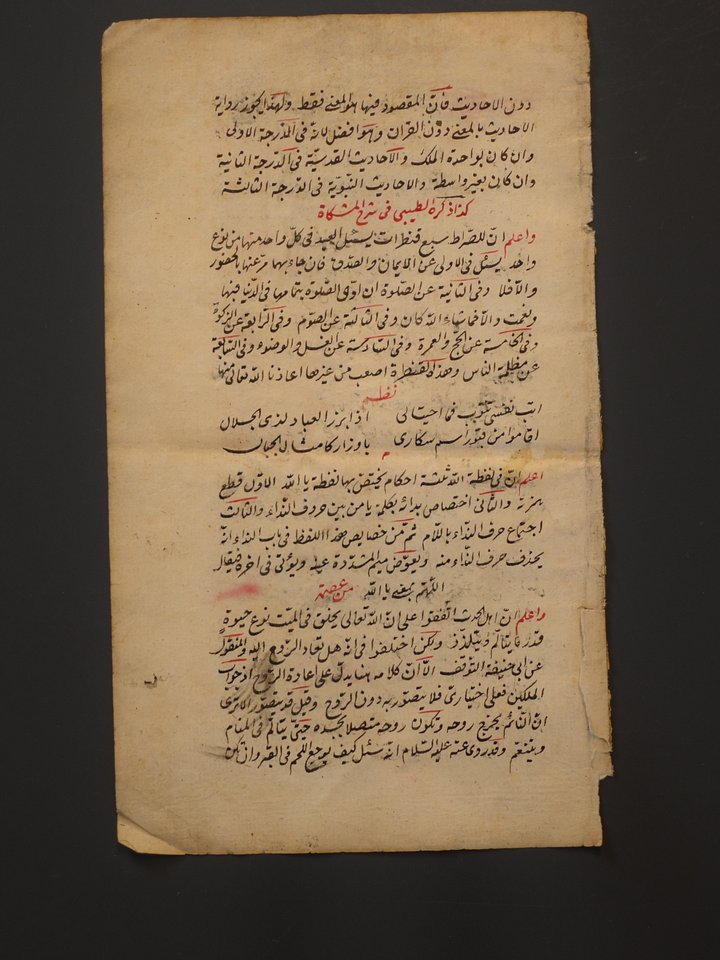 دون الاحاديث فان المقصود فيها هو المعنى فقط ولهذا يجوز رواية
الاحاديث بالمعنى دون القران وهو افضل لانه فى الدرجة الاولى
وان كان بواحدة الملك والاحاديث القدسية فى الدرجة الثانية
وان كان بغير واسطة والاحاديث النبوية فى الدرجة الثالثة
كذا ذكره الطيبى فى شرح المشكاة
واعلم ان للصراط سبع قنطرات يسئل العبد فى كل واحد منها من نوع
واحد يسئل فى الاولى عن الايمان والصدق فان جاء بهما مر عنها بالحضور
والا فلا وفى الثانية عن الصلوة ان ادى الصلوة بتمامها فى الدنيا فبها
ونعمت والا فما شاء الله كان وفى الثالثة عن الصوم وفى الرابعة عن الزكوة
وفى الخامسة عن الحج والعمرة وفى السادسة عن الغسل والوضوء وفى السابعة
عن مظلمة الناس وهذه القنطرة اصعب من غيرها اعاذنا الله تعالى منها
نظم
ابت نفسى تتوب فما احتيالى اذا برز العباد لذى الجلال
اقاموا من قبور اسم سكارى باوزار كامثال الجبال
اعلم ان فى لفظة الله ثلثة احكام يختص بها لفظة يا الله الاول قطع
همزته والثانى اختصاص بدائه بكلمة يا من بين حروف النداء والثالث
اجتماع حرف النداء باللام ثم من خصايص هذا اللفظ فى باب النداء انه
يحذف حرف النداء منه ويعوض ميم المشددة عنه ويؤتى فى اخره فيقال
اللهم بمعنى يا الله من عصمة
واعلم ان اهل الحدث اتفقوا على ان الله تعالى يخلق فى الميت نوع حيوة
قدر ما يتألم ويتلذذ ولكن اختلفوا فى انه هل تعاد الروح اليه والمنقول
عن ابى حنيفة التوقف الا ان كلامه هنا يدل على اعادة الروح اذ جواب
الملكين فعل اختيارى فلا يتصور به دون الروح وقيل قد يتصور الا ترى
ان النائم يخرج روحه وتكون روحه متصلا بجسده حتى يتألم فى المنام
ويتنعم وقد روى عنه عليه السلام انه سئل كيف يوجع اللحم فى القبر وان لم يكن